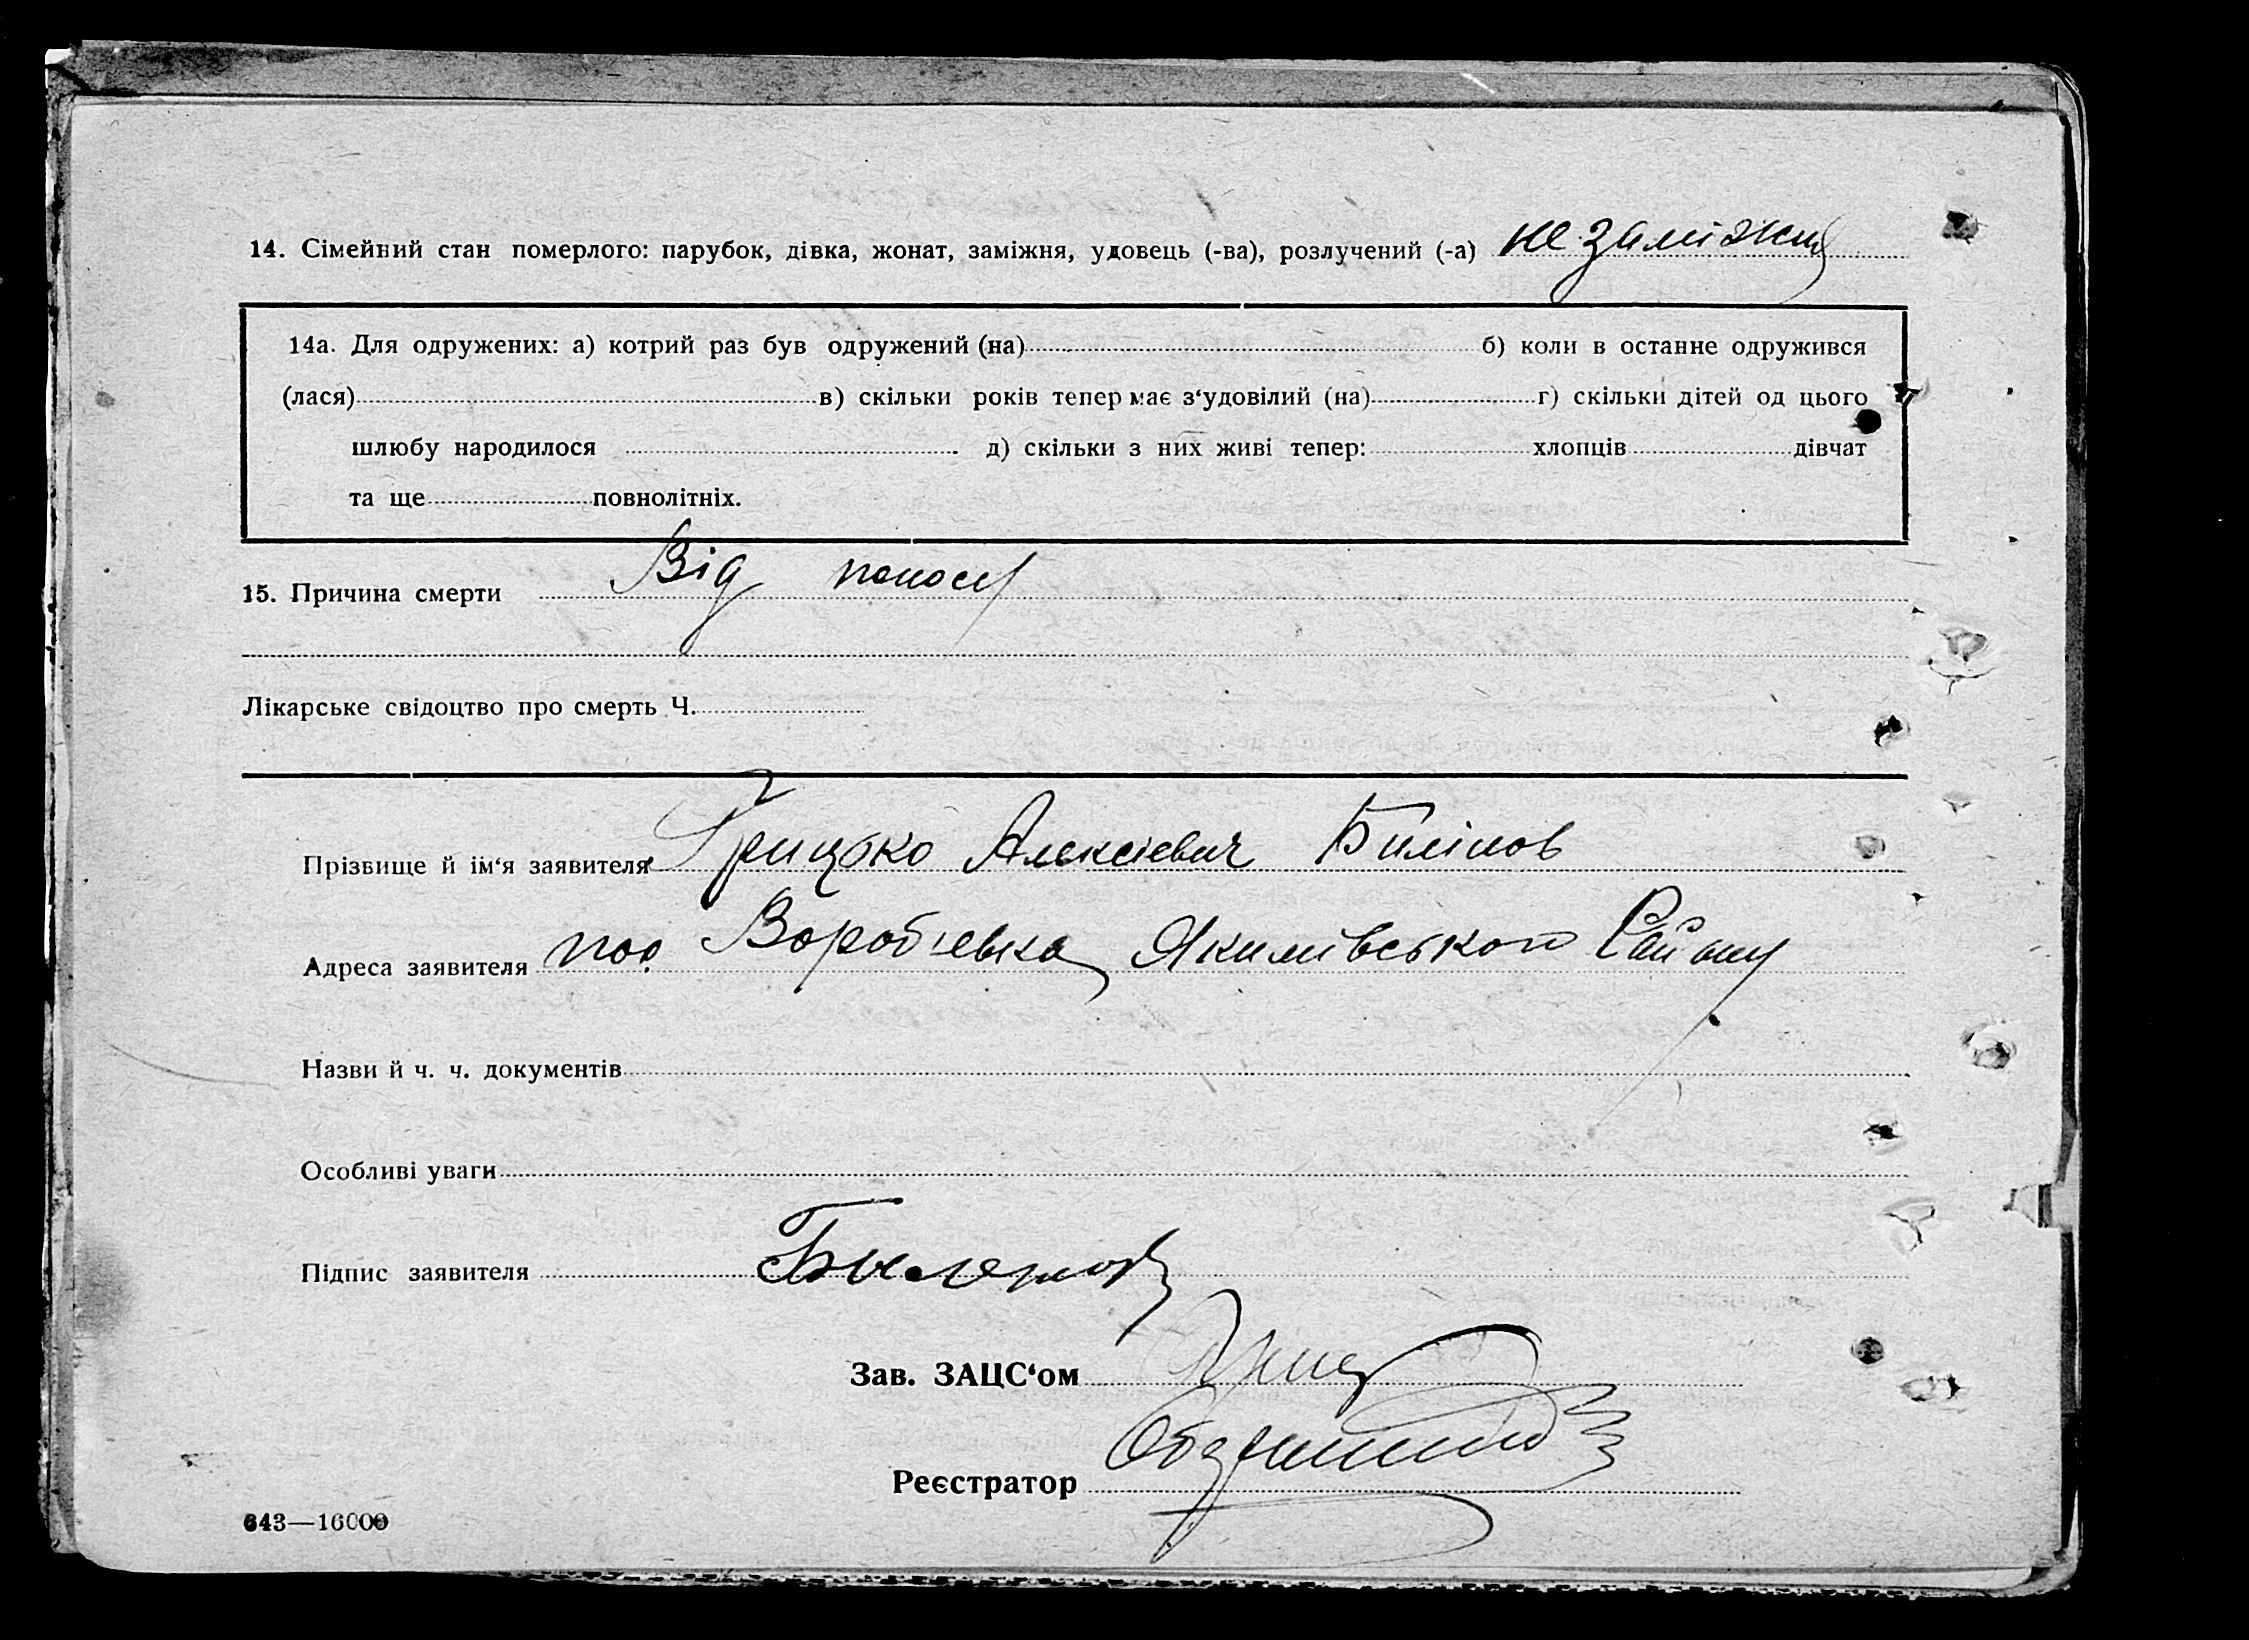 14. Сімейний стан померлого: парубок, дівка, жонат, заміжня, удовець (-ва), розлучений (-а) незаміжня
14а. Для одружених: а) котрий раз був одружений (на) б) коли в останне одружився
(лася) в) скільки років тепер має з‘удовілий (на) г) скільки дітей од цього
шлюбу народилося д) скільки з них живі тепер: хлопців дівчат
та ще повнолітніх.
15. Причина смерти Від поносу
Лікарське свідоцтво про смерть Ч.
Прізвище й ім‘я заявителя Грицько Алексієвич
Адреса заявителя пос. Вороб'евка Якимівського Району
Назви й ч. ч. документів
Особливі уваги
Підпис заявителя
Зав. ЗАЦС‘ом
Реєстратор
643—16000